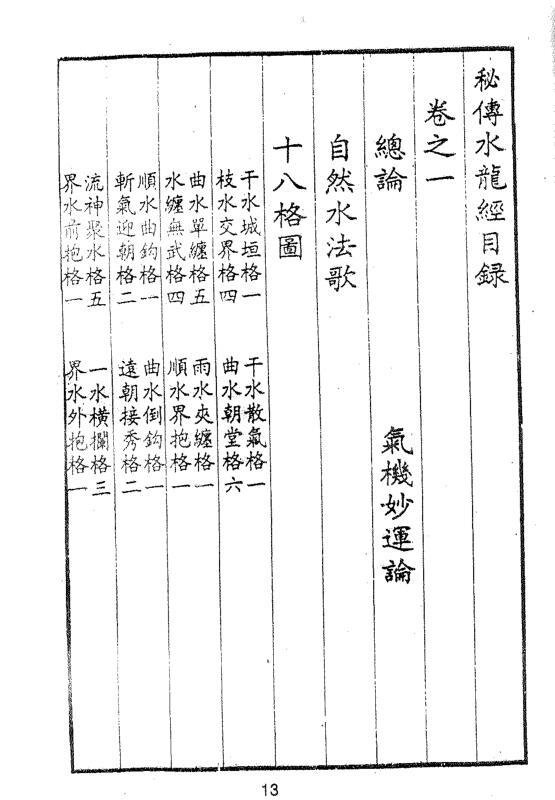 秘傳水龍經目録
卷之一
總論
氣機妙運論
自然水法歌
十八格圖
干水城垣格一
枝水交界格四
干水散氣格一
曲水朝堂格六
曲水單纏格五
水纏無武格四
雨水夾纏格一
順水界抱格一
順水曲鈎格一
斬氣迎朝格二
曲水倒鈎格一
遠朝接秀格二
流神聚水格五
界水前抱格一
一水橫攔格三
界水外抱格一
13